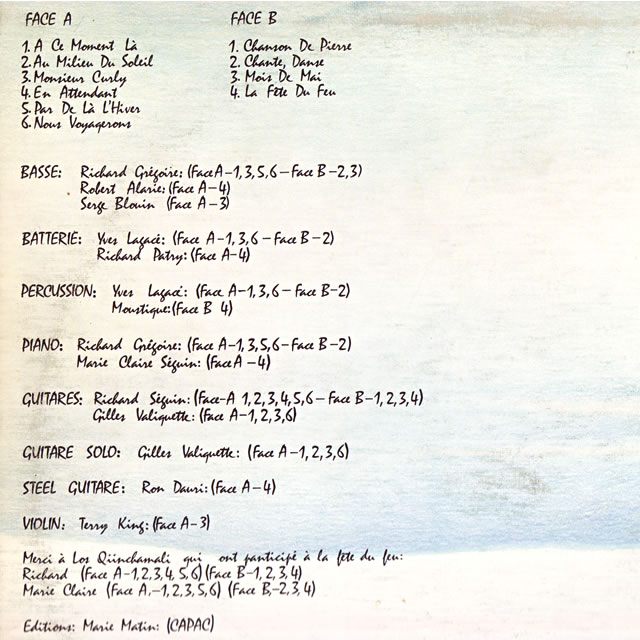 FACE A
1. A Ce Moment Là
2. Au Milieu Du Soleil
3. Monsieur Curly
4. En Attendant
5. Par De Là L'Hiver
6. Nous Voyagerons
FACE B
1. Chanson De Pierre
2. Chante, Danse
3. Mois De Mai
4. La Fête Du Feu
BASSE: Richard Grégoire: (Face A-1,3,5,6 - Face B-2,3)
Robert Alarie: (Face A-4)
Serge Blouin (Face A-3)
BATTERIE: Yves Lagacé: (Face A-1,3,6 - Face B-2)
Richard Patry: (Face A-4)
PERCUSSION: Yves Lagacé: (Face A-1,3,6 - Face B-2)
Moustique: (Face B 4)
PIANO: Richard Grégoire: (Face A-1,3,5,6 - Face B-2)
Marie Claire Séguin: (Face A-4)
GUITARES: Richard Séguin: (Face-A 1,2,3,4,5,6 - Face B-1,2,3,4)
Gilles Valiquette: (Face A-1,2,3,6)
GUITARE SOLO: Gilles Valiquette: (Face A-1,2,3,6)
STEEL GUITARE: Ron Dauri: (Face A-4)
VIOLIN: Terry King: (Face A-3)
Merci à Los Qüinchamali qui ont participé à la fête du feu:
Richard (Face A-1,2,3,4,5,6) (Face B-1,2,3,4)
Marie Claire (Face A,-1,2,3,5,6) (Face B,-2,3,4)
Editions: Marie Matin: (CAPAC)